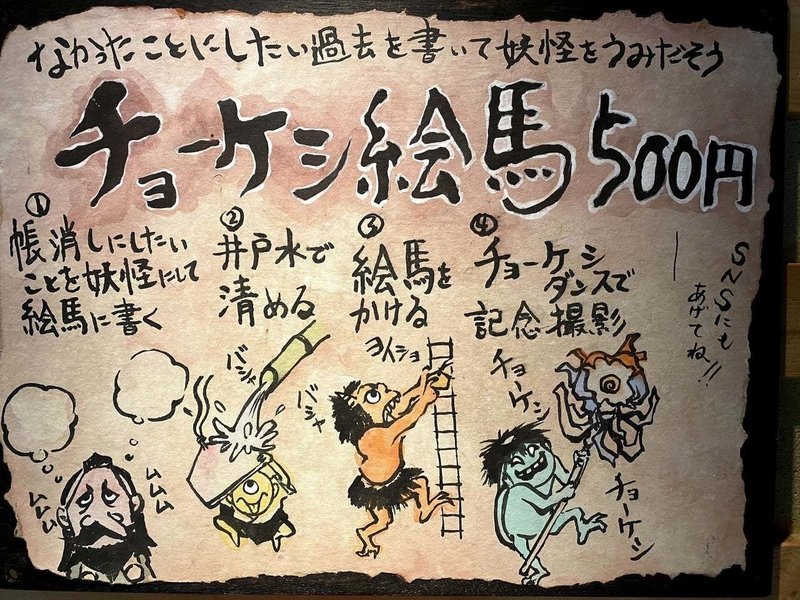 なかったことにしたい過去を書いて妖怪をうみだそう
チョーケシ絵馬 500円
①
帳消しにしたい
ことを妖怪にして
絵馬に書く
②
井戸水で
清める
③
絵馬を
かける
④
チョーケシ
ダンスで
記念撮影
SNSにも
あげてね!!
ムムム
ムムム
バシャ
バシャ
ヨイショ
チョーケシ
チョーケシ